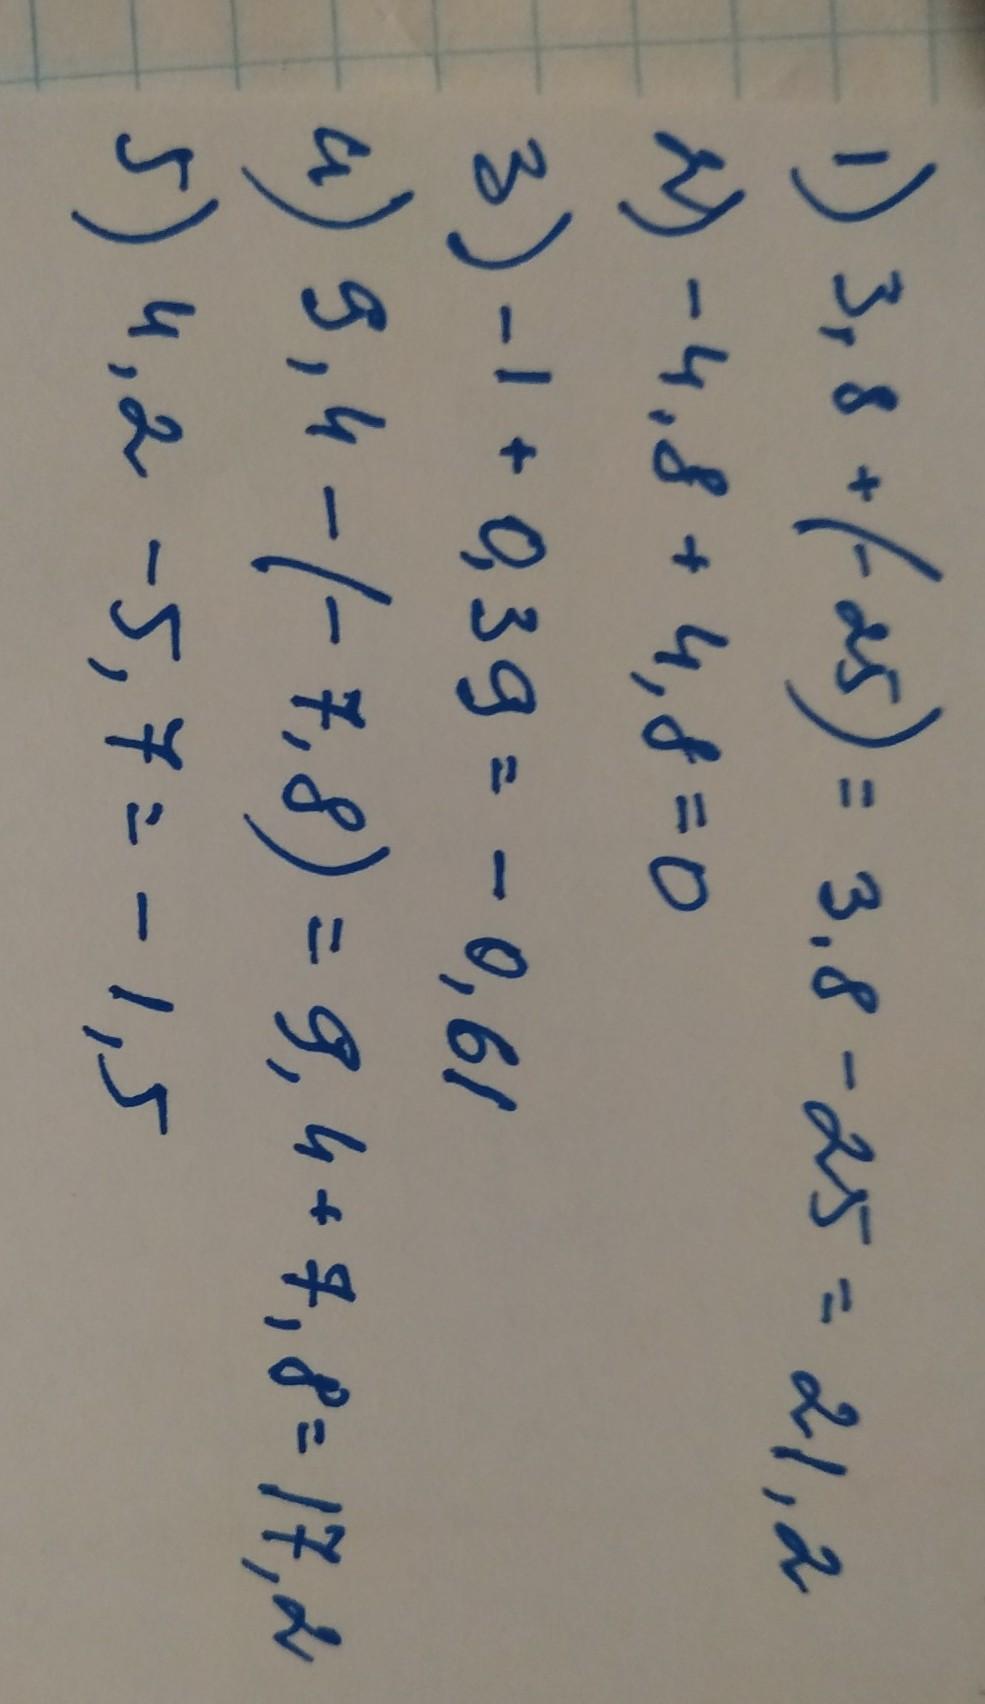 1) 3,8 + (-25) = 3,8 - 25 = 21,2
2) -4,8 + 4,8 = 0
3) -1 + 0,39 = - 0,61
4) 9,4 - (- 7,8) = 9,4 + 7,8 = 17,2
5) 4,2 - 5,7 = - 1,5